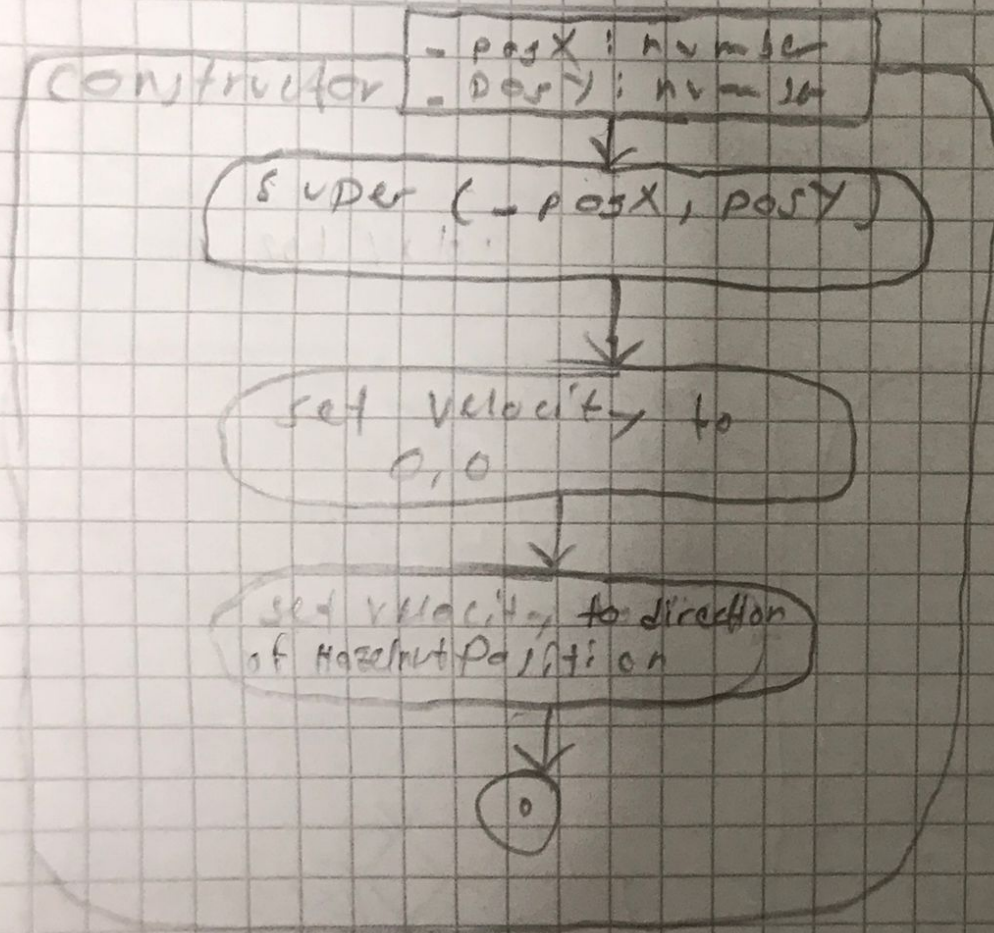 constructor
- posX : number
- posY : number
super (_posX, posY)
set velocity to
0,0
set velocity to direction
of HazelnutPosition